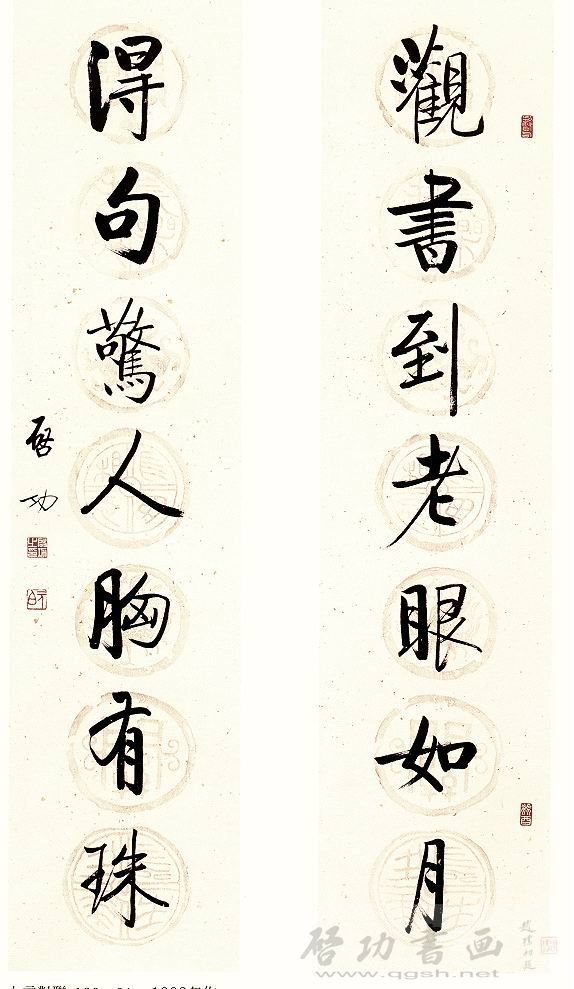 觀書到老眼如月
得句驚人胸有珠
啓功
啓功書画
www.qgsh.net